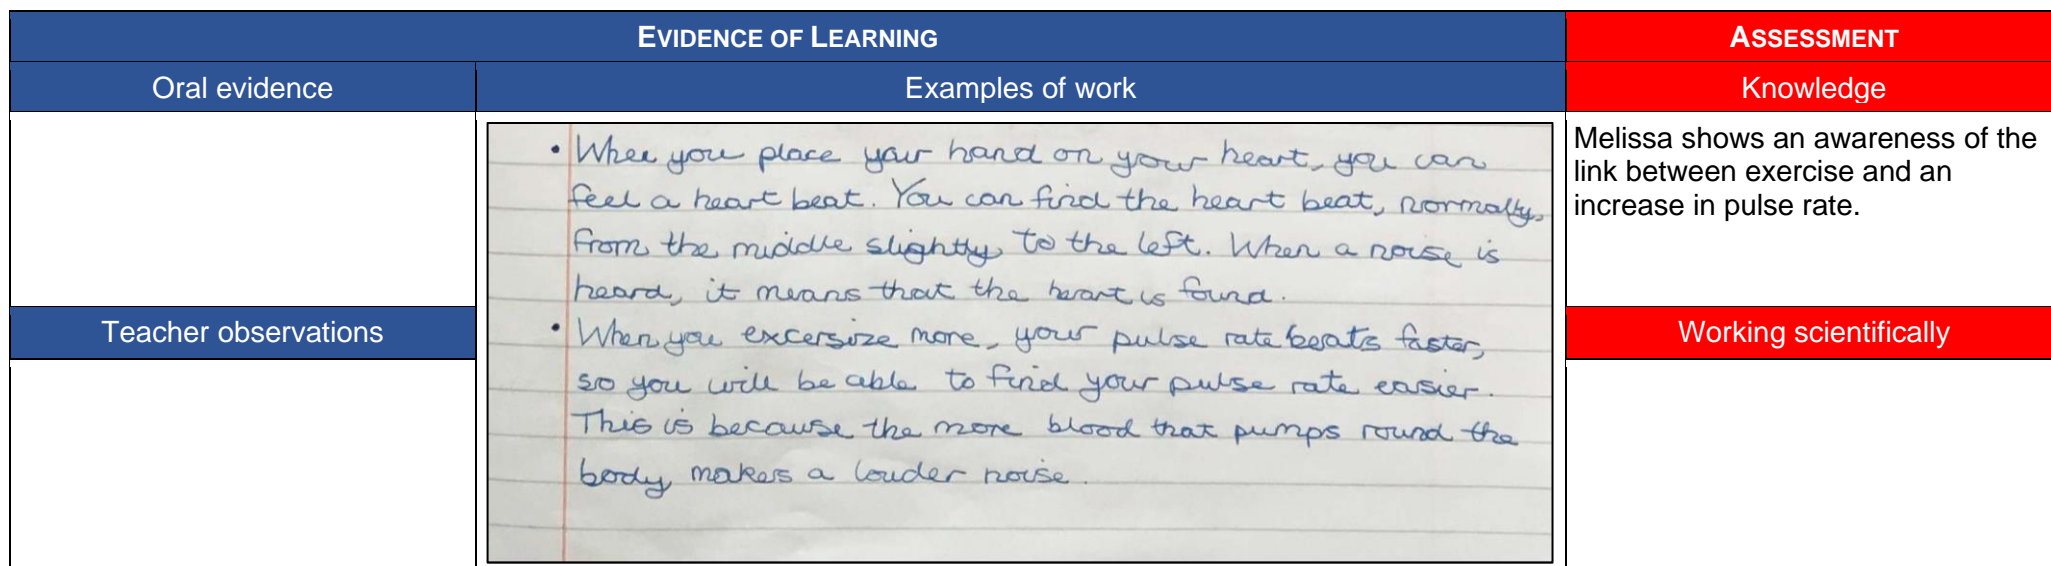 EVIDENCE OF LEARNING
ASSESSMENT
Oral evidence
Examples of work
Knowledge
• When you place your hand on your heart, you can
feel a heart beat. You can find the heart beat, normally,
from the middle slightly to the left. When a noise is
heard, it means that the heart is found.
• When you excersize more, your pulse rate beats faster,
so you will be able to find your pulse rate easier.
This is because the more blood that pumps round the
body, makes a louder noise.
Melissa shows an awareness of the
link between exercise and an
increase in pulse rate.
Teacher observations
Working scientifically